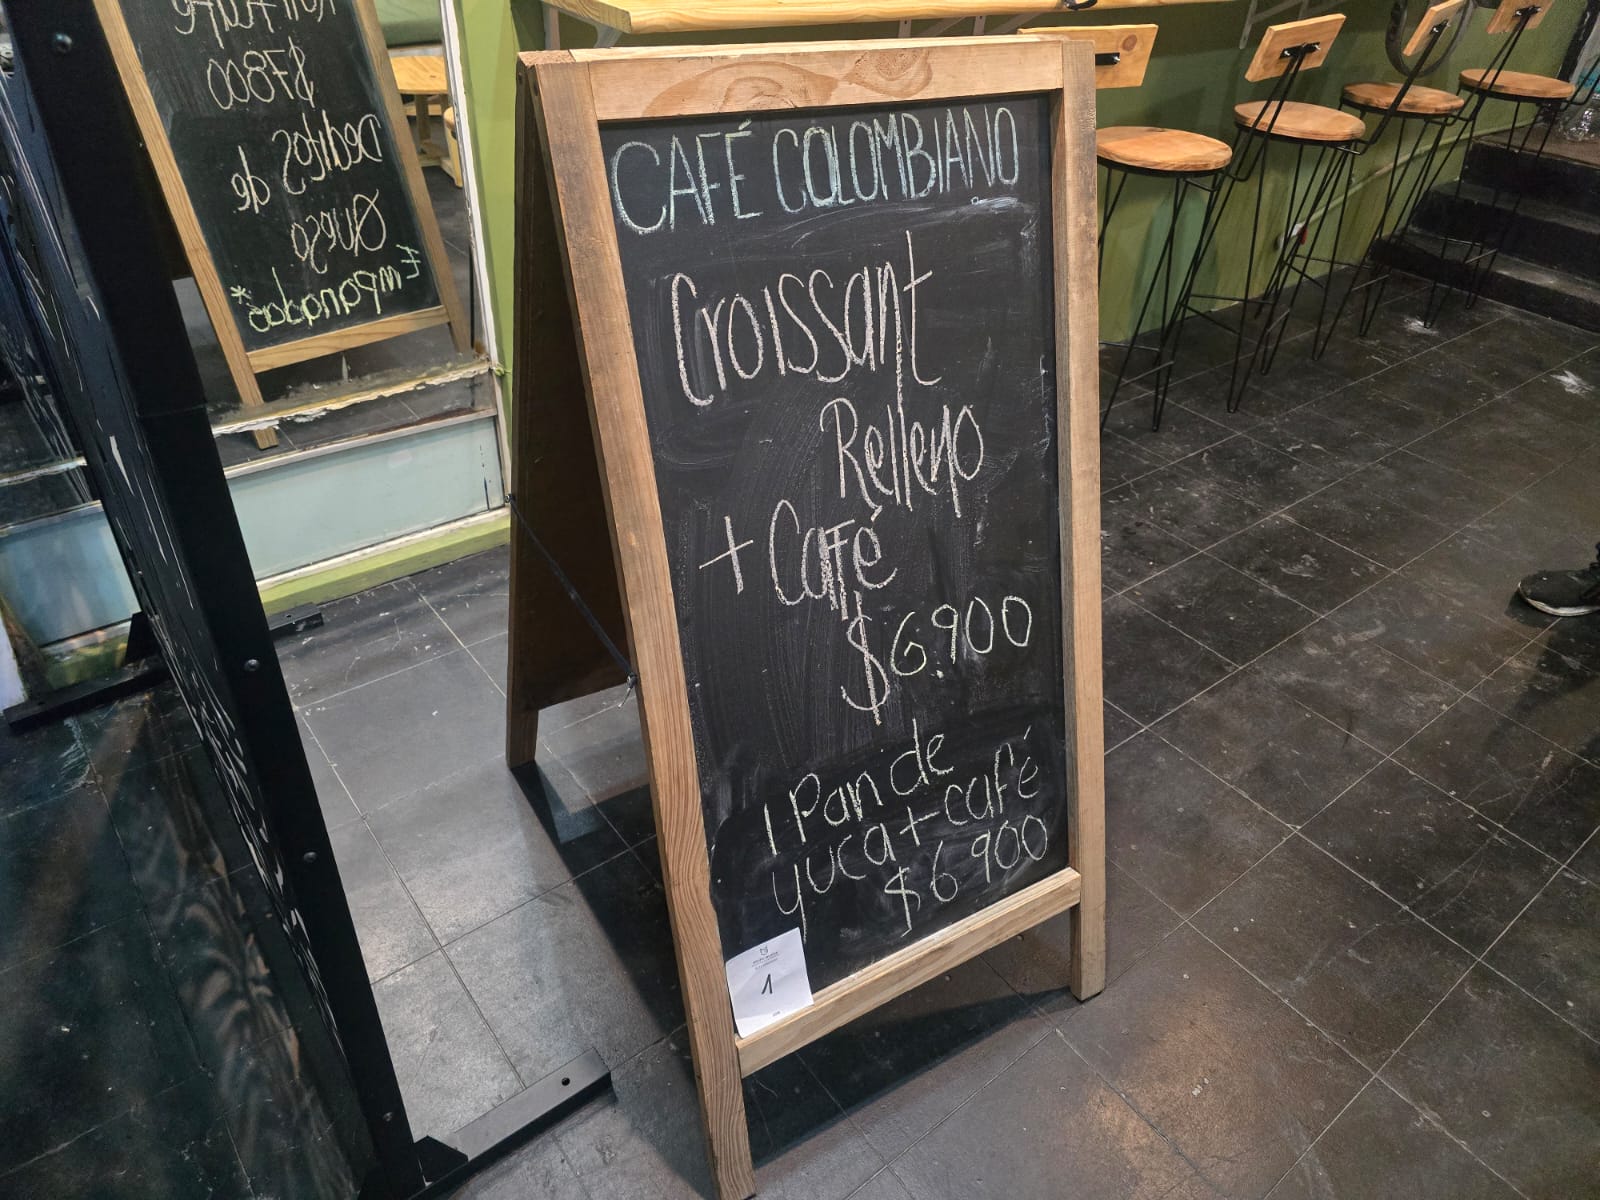 CAFÉ COLOMBIANO
Croissant
Relleno
+ Café
$6.900
1 Pan de
yuca + café
$6.900
1
$7800
Deditos
de
Queso
Empanadas*